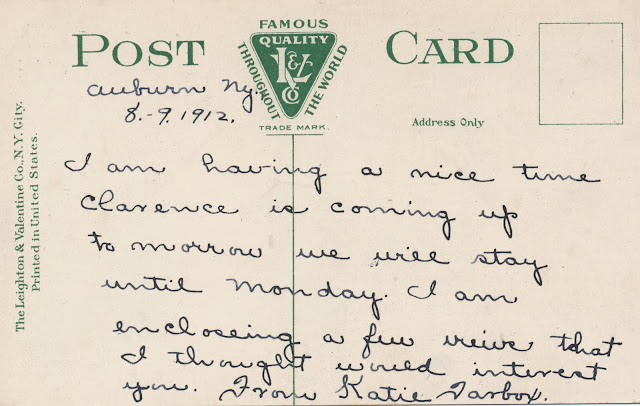 FAMOUS
QUALITY
THROUGHOUT
THE WORLD
L&V
Co
TRADE MARK.
POST CARD
Address Only
The Leighton & Valentine Co., N.Y. City.
Printed in United States.
Auburn Ny.
8.-9.1912.
I am having a nice time
Clarence is coming up
to morrow we will stay
until Monday. I am
encloseing a few veiws that
I thought would interest
you. From Katie Tarbox.